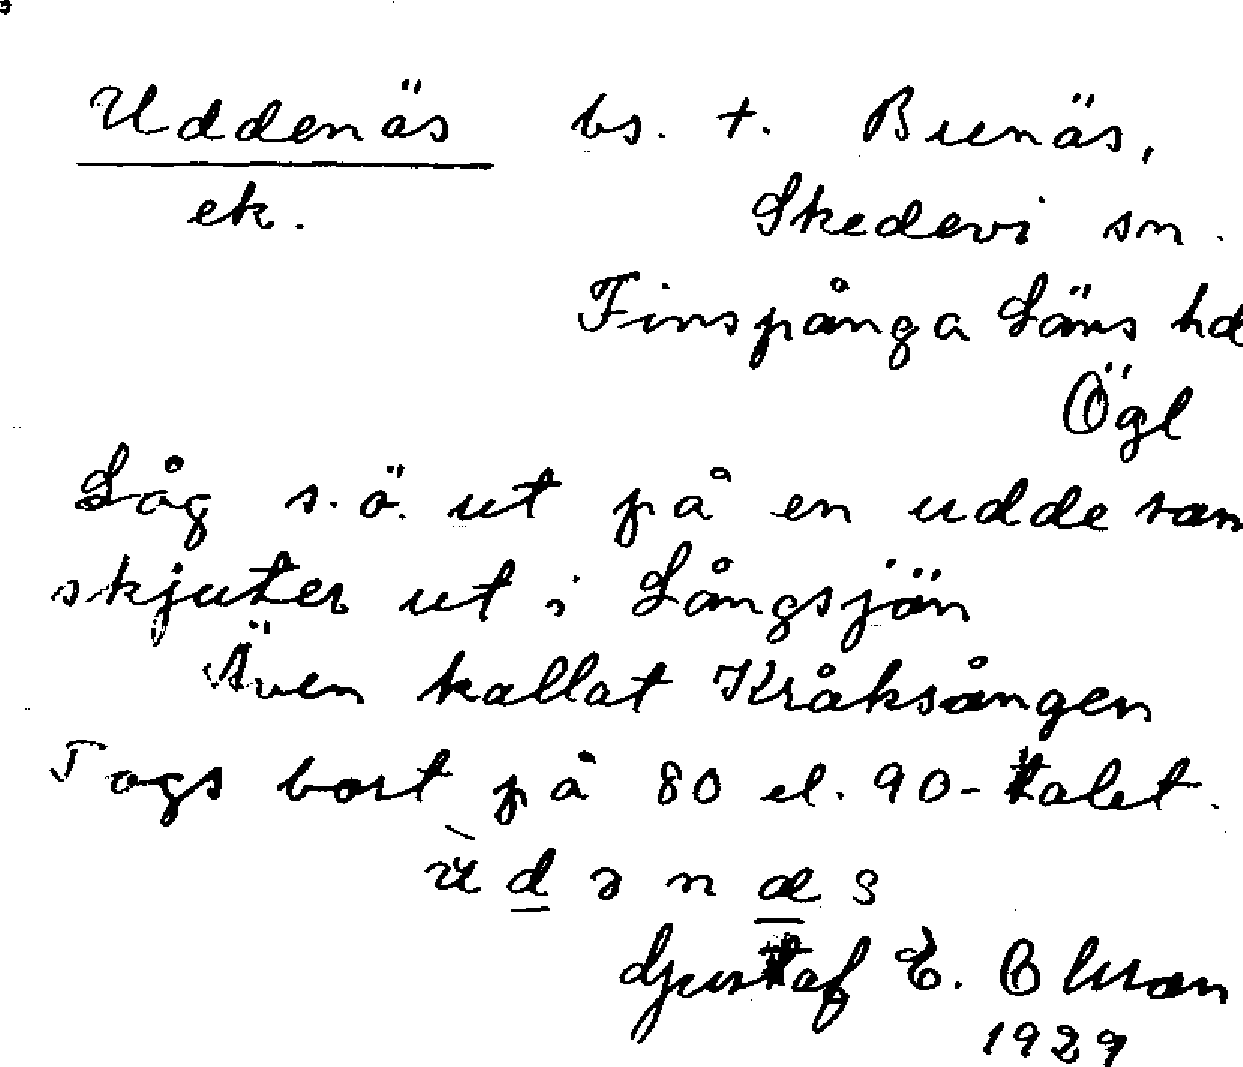 Uddenäs bs. t. Bunäs,
ek. Skedevi sn.
Finspånga Läns hd
Ögl
Låg s.ö. ut på en udde som
skjuter ut i Långsjön
Även kallat Kråksången
Togs bort på 80 el. 90-talet.
ù d ə n æ s
Gustaf E. Olsson
1929